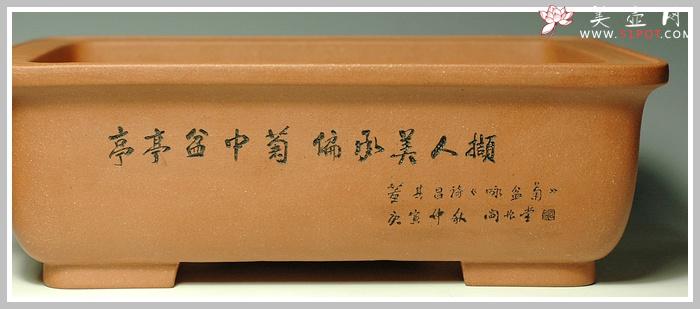 美壶网
WWW.51POT.COM
亭亭盆中菊偏承美人擷
董其昌诗《咏盆菊》
庚寅仲秋 堂